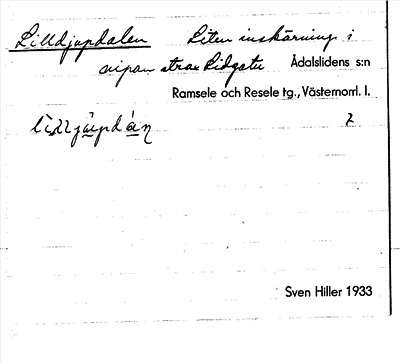 Lilldjupdalen Liten inskärning i
nipan strax Lidgatu Ådalslidens s:n
Ramsele och Resele tg., Västernorrl. l.
2
Sven Hiller 1933